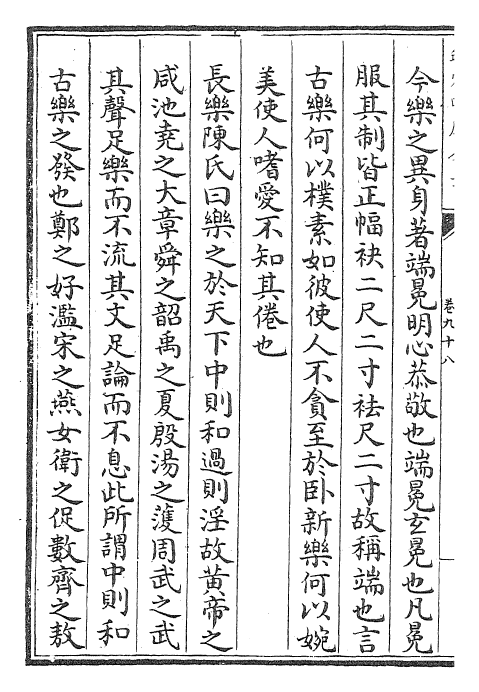 卷九十八
今樂之異身著端冕明心恭敬也端冕玄冕也凡冕
服其制皆正幅袂二尺二寸袪尺二寸故稱端也言
古樂何以樸素如彼使人不貪至於卧新樂何以婉
美使人嗜愛不知其倦也
長樂陳氏曰樂之於天下中則和過則淫故黄帝之
咸池堯之大章舜之韶禹之夏殷湯之濩周武之武
其聲足樂而不流其文足論而不息此所謂中則和
古樂之發也鄭之好濫宋之燕女衛之促數齊之敖